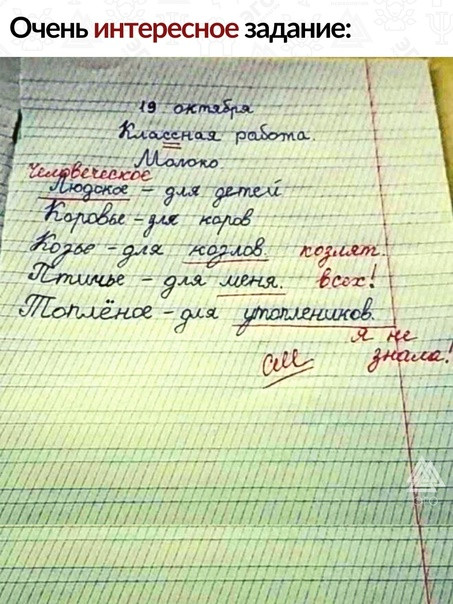 Очень интересное задание:
19 октября
Классная работа.
Молоко.
Человеческое
Людское – для детей
Коровье – для коров
Козье – для козлов. козлят.
Птичье – для меня. всех!
Топлёное – для утоплеников.
я не
знала!
см